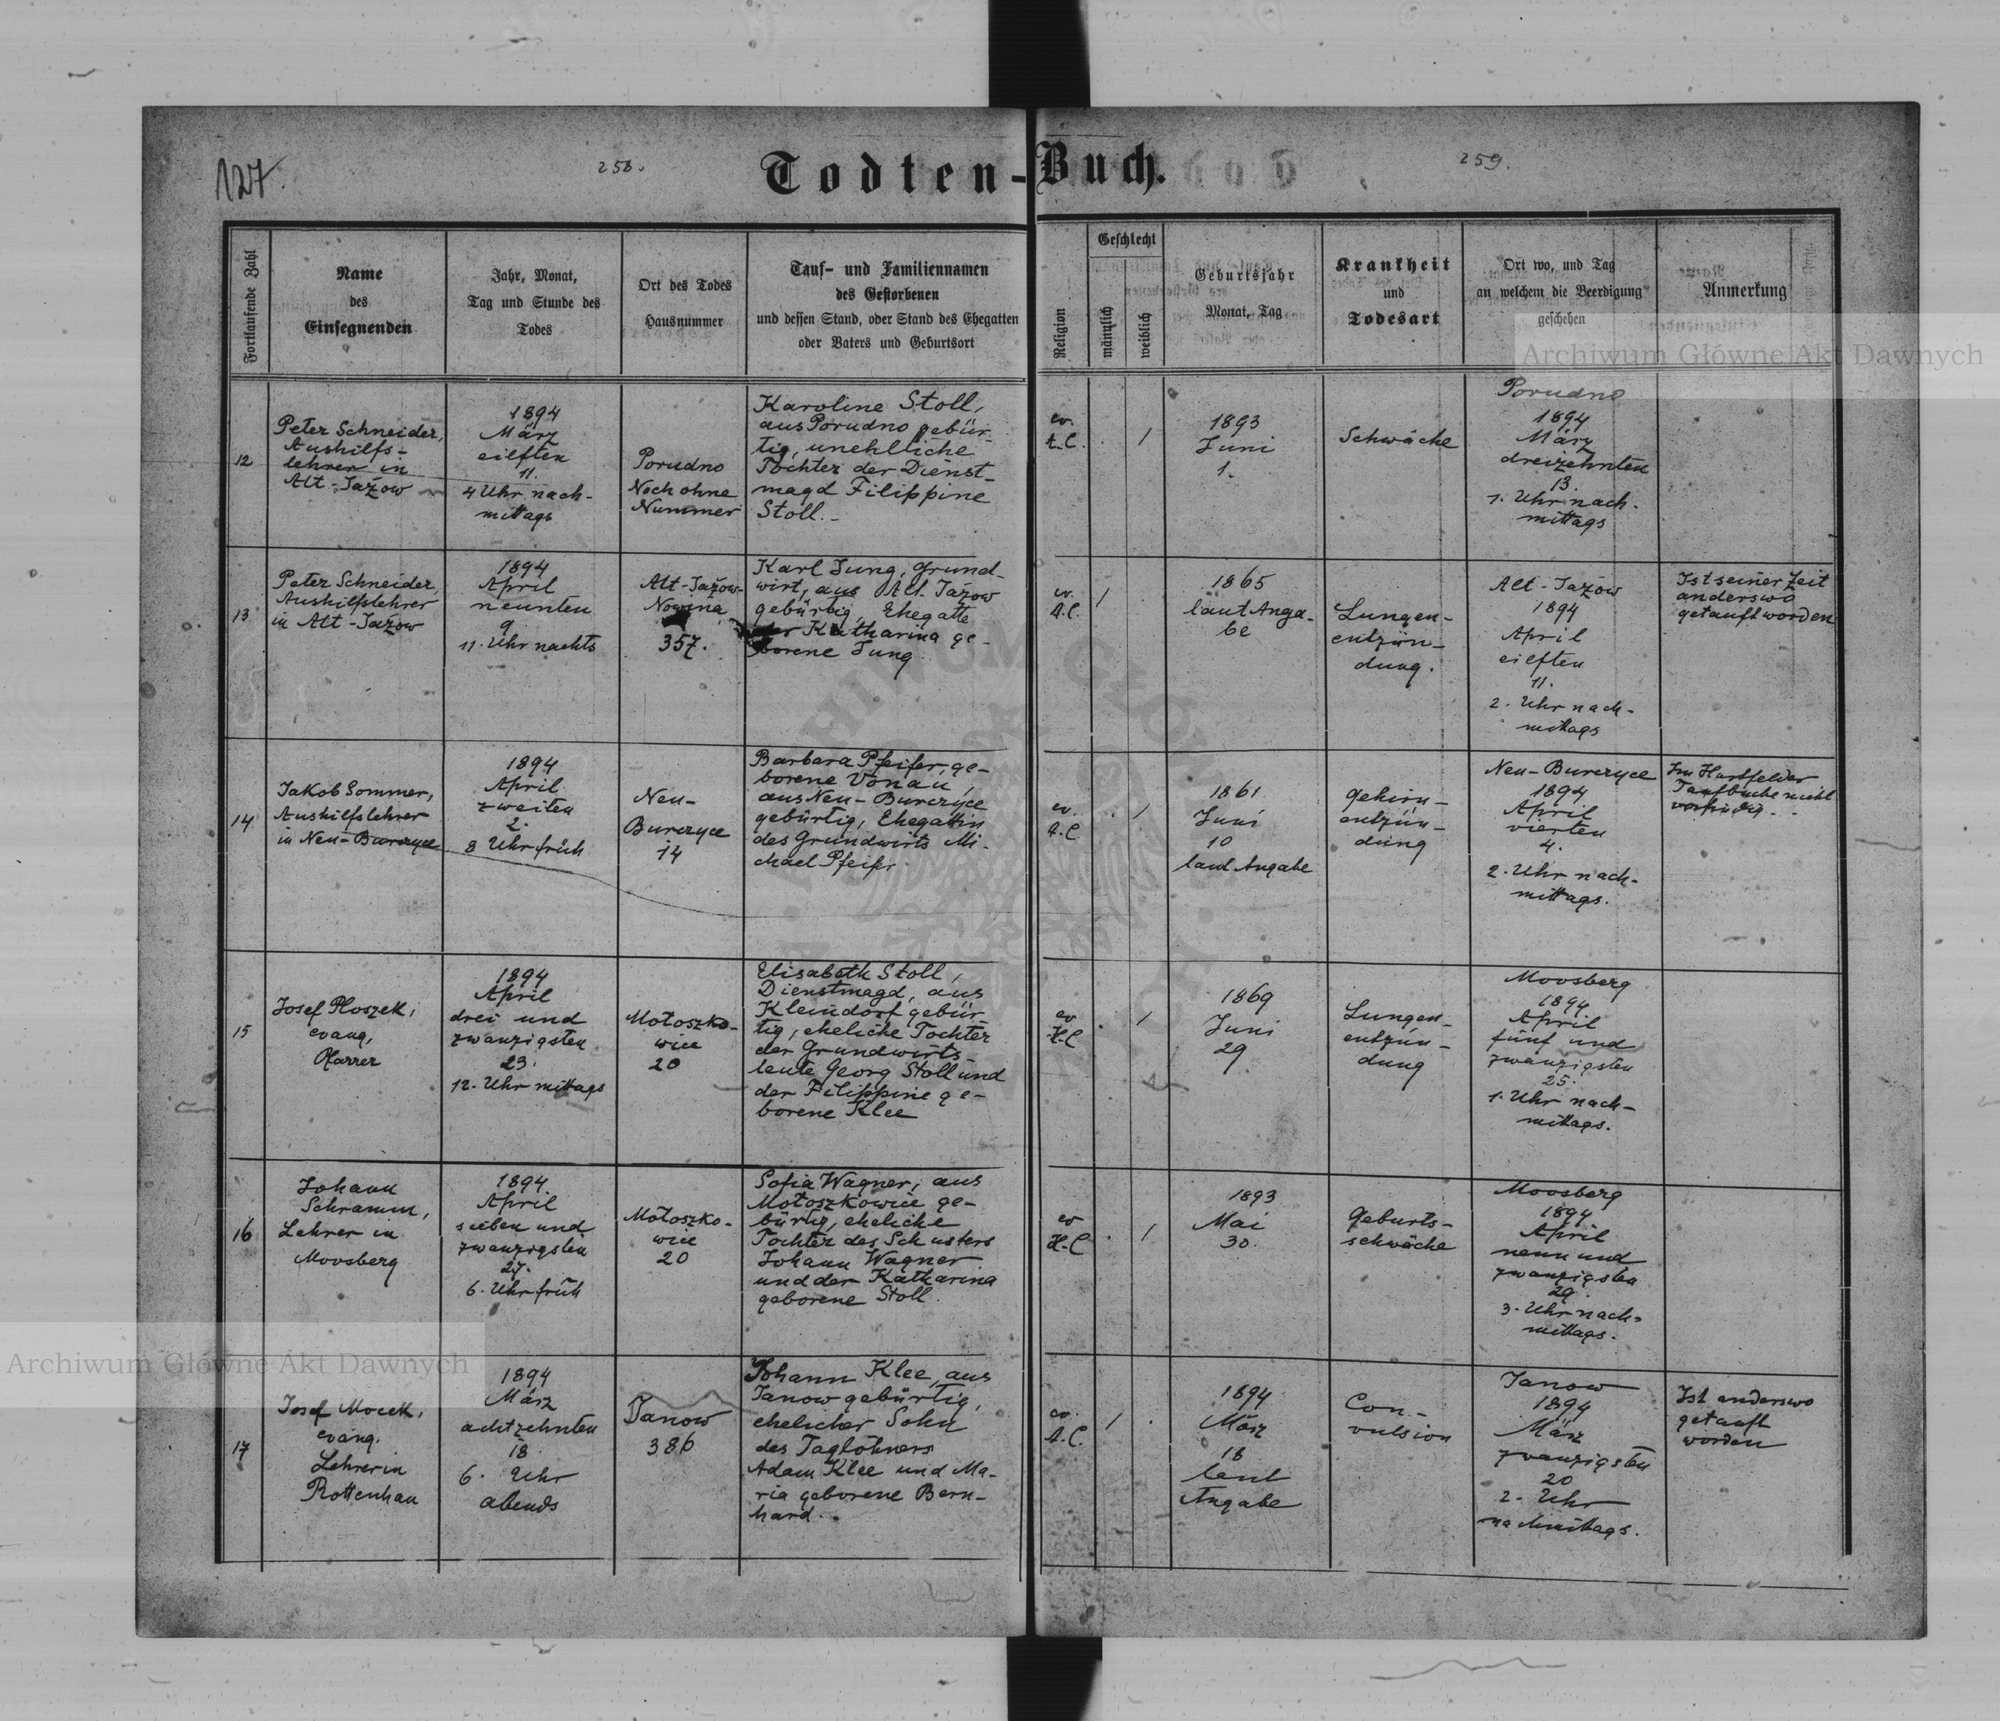 127.
258.
Todten-Buch.
259.
Fortlaufende Zahl
Name
des
Einsegnenden
Jahr, Monat,
Tag und Stunde des
Todes
Ort des Todes
Hausnummer
Tauf- und Familiennamen
des Gestorbenen
und dessen Stand, oder Stand des Ehegatten
oder Vaters und Geburtsort
Religion
Geschlecht
männlich
weiblich
Geburtsjahr
Monat, Tag
Krankheit
und
Todesart
Ort wo, und Tag
an welchem die Beerdigung
geschehen
Anmerkung
Archiwum Główne Akt Dawnych
12
Peter Schneider,
Aushilfs-
lehrer in
Alt-Jażow
1894
März
eilften
11.
4 Uhr nach-
mittags
Porudno
Noch ohne
Nummer
Karoline Stoll,
aus Porudno gebür-
tig, unehlliche
Tochter der Dienst-
magd Filippine
Stoll.-
ev.
A.C.
1
1893
Juni
1.
Schwäche
Porudno
1894
März
dreizehnten
13.
1. Uhr nach-
mittags
13
Peter Schneider,
Aushilfslehrer
in Alt-Jażow
1894
April
neunten
9
11. Uhr nachts
Alt-Jażow-
Nowina
357.
Karl Jung, Grund-
wirt, aus Alt. Jażow
gebürtig, Ehegatte
der Katharina ge-
borene Jung
ev.
A.C.
1
1865
laut Anga-
be
Lungen-
entzün-
dung.
Alt-Jażow
1894
April
eilften
11.
2. Uhr nach-
mittags
Ist seiner Zeit
anderswo
getauft worden
14
Jakob Sommer,
Aushilfslehrer
in Neu-Burczyce
1894
April
zweiten
2.
8 Uhr früh
Neu-
Burczyce
14
Barbara Pfeifer, ge-
borene Vonau,
aus Neu-Burczyce
gebürtig, Ehegattin
des Grundwirts Mi-
chael Pfeifer
ev.
A.C.
1
1861
Juni
10
laut Angabe
Gehirn-
entzün-
dung
Neu-Burczyce
1894
April
vierten
4.
2. Uhr nach-
mittags.
Im Hartfelder
Taufbuche nicht
vorfindig.
15
Josef Ploszek,
evang.
Pfarrer
1894
April
drei und
zwanzigsten
23.
12. Uhr mittags
Mołoszko-
wice
20
Elisabeth Stoll,
Dienstmagd, aus
Kleindorf gebür-
tig, eheliche Tochter
der Grundwirts-
leute Georg Stoll und
der Filippine ge-
borene Klee
ev
H.C
1
1869
Juni
29
Lungen-
entzün-
dung
Moosberg
1894
April
fünf und
zwanzigsten
25.
1. Uhr nach-
mittags.
16
Johann
Schramm,
Lehrer in
Moosberg
1894
April
sieben und
zwanzigsten
27.
6. Uhr früh
Mołoszko-
wice
20
Sofia Wagner, aus
Mołoszkowice ge-
bürtig, eheliche
Tochter des Schusters
Johann Wagner
und der Katharina
geborene Stoll.
ev
H.C
1
1893
Mai
30.
Geburts-
schwäche
Moosberg
1894
April
neun und
zwanzigsten
29.
3. Uhr nach-
mittags.
17
Josef Mocek,
evang.
Lehrer in
Rottenhan
1894
März
achtzehnten
18
6. Uhr
abends
Janow
386
Johann Klee, aus
Janow gebürtig,
ehelicher Sohn
des Taglöhners
Adam Klee und Ma-
ria geborene Bern-
hard.
ev.
A.C.
1
1894
März
18
laut
Angabe
Con-
vulsion
Janow
1894
März
zwanzigsten
20
2. Uhr
nachmittags.
Ist anderswo
getauft
worden
Archiwum Główne Akt Dawnych